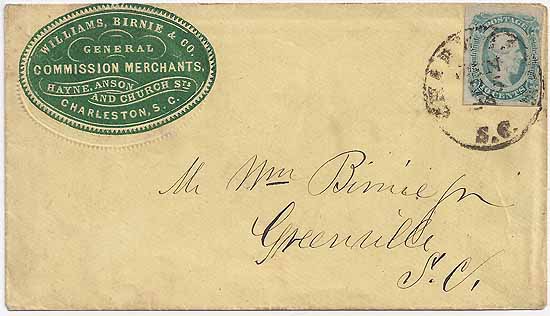 WILLIAMS, BIRNIE & CO.
GENERAL
COMMISSION MERCHANTS,
HAYNE, ANSON
AND CHURCH Sts
CHARLESTON, S.C.
POSTAGE
CENTS
S.C.
Mr Wm Birnie Jr
Greenville
S.C.